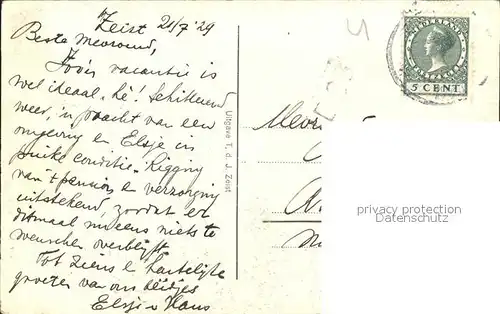 Zeist 21/7 '29
Beste Mevrouw,
Zoo'n vacantie is
wel ideaal, hè! Schitterend
weer, 'n pracht van een
omgeving en Elsje in
puike conditie. Ligging
van 't pension en verzorging
uitstekend, zoodat er
ditmaal niets te
wenschen overblijft.
Tot ziens en hartelijke
groeten van ons beidjes
Elsje Hans
Uitgave T. d. J. Zeist
NEDERLAND
5 CENT
Mevr
privacy protection
Datenschutz